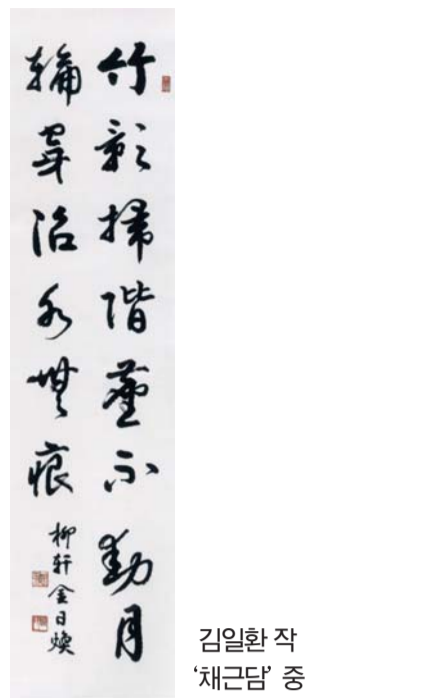 竹影掃階塵不動月
輪穿沼水無痕
柳軒金日煥
김일환 작
‘채근담’ 중